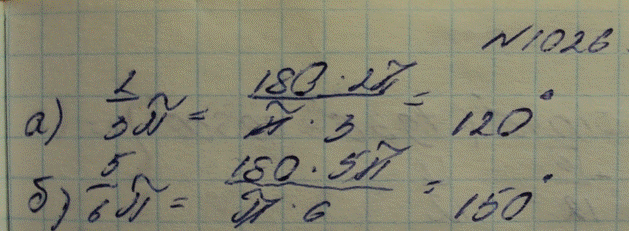 №1026.
а) 2/3 π = 180 · 2π / π · 3 = 120°
б) 5/6 π = 180 · 5π / π · 6 = 150°